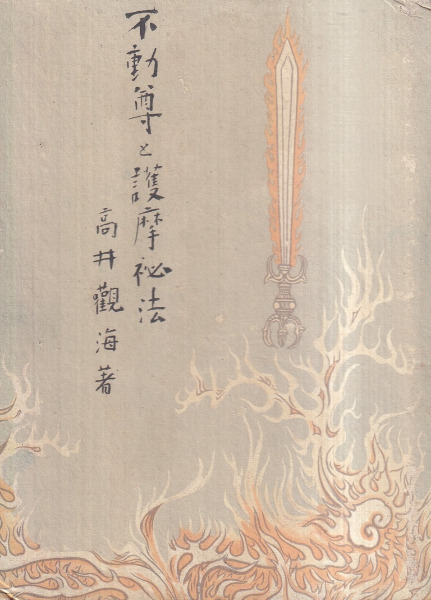 不動尊と護摩祕法
高井觀海著